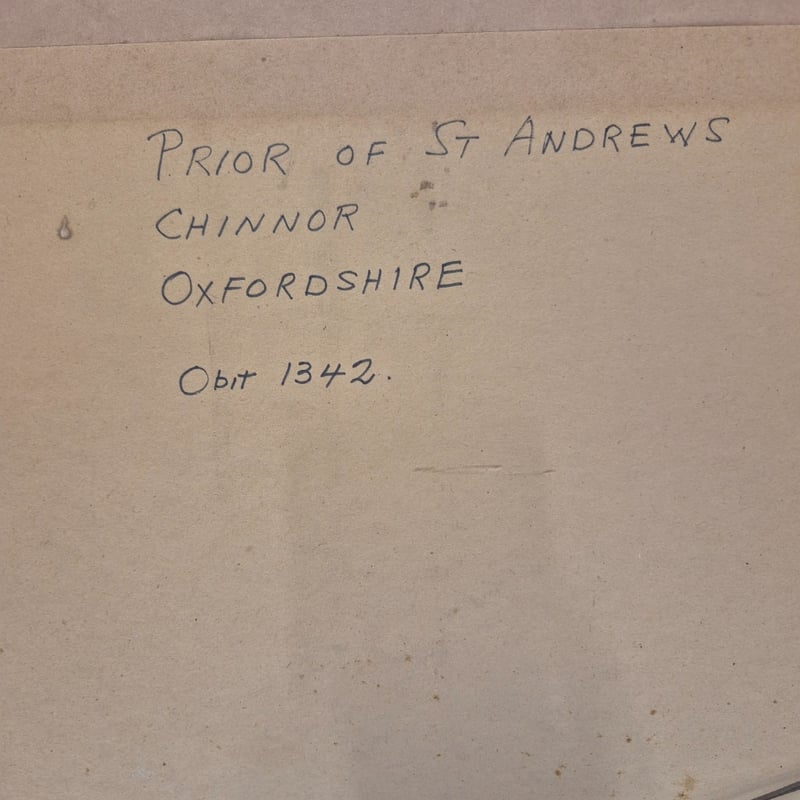 PRIOR OF ST ANDREWS
CHINNOR
OXFORDSHIRE
Obit 1342.